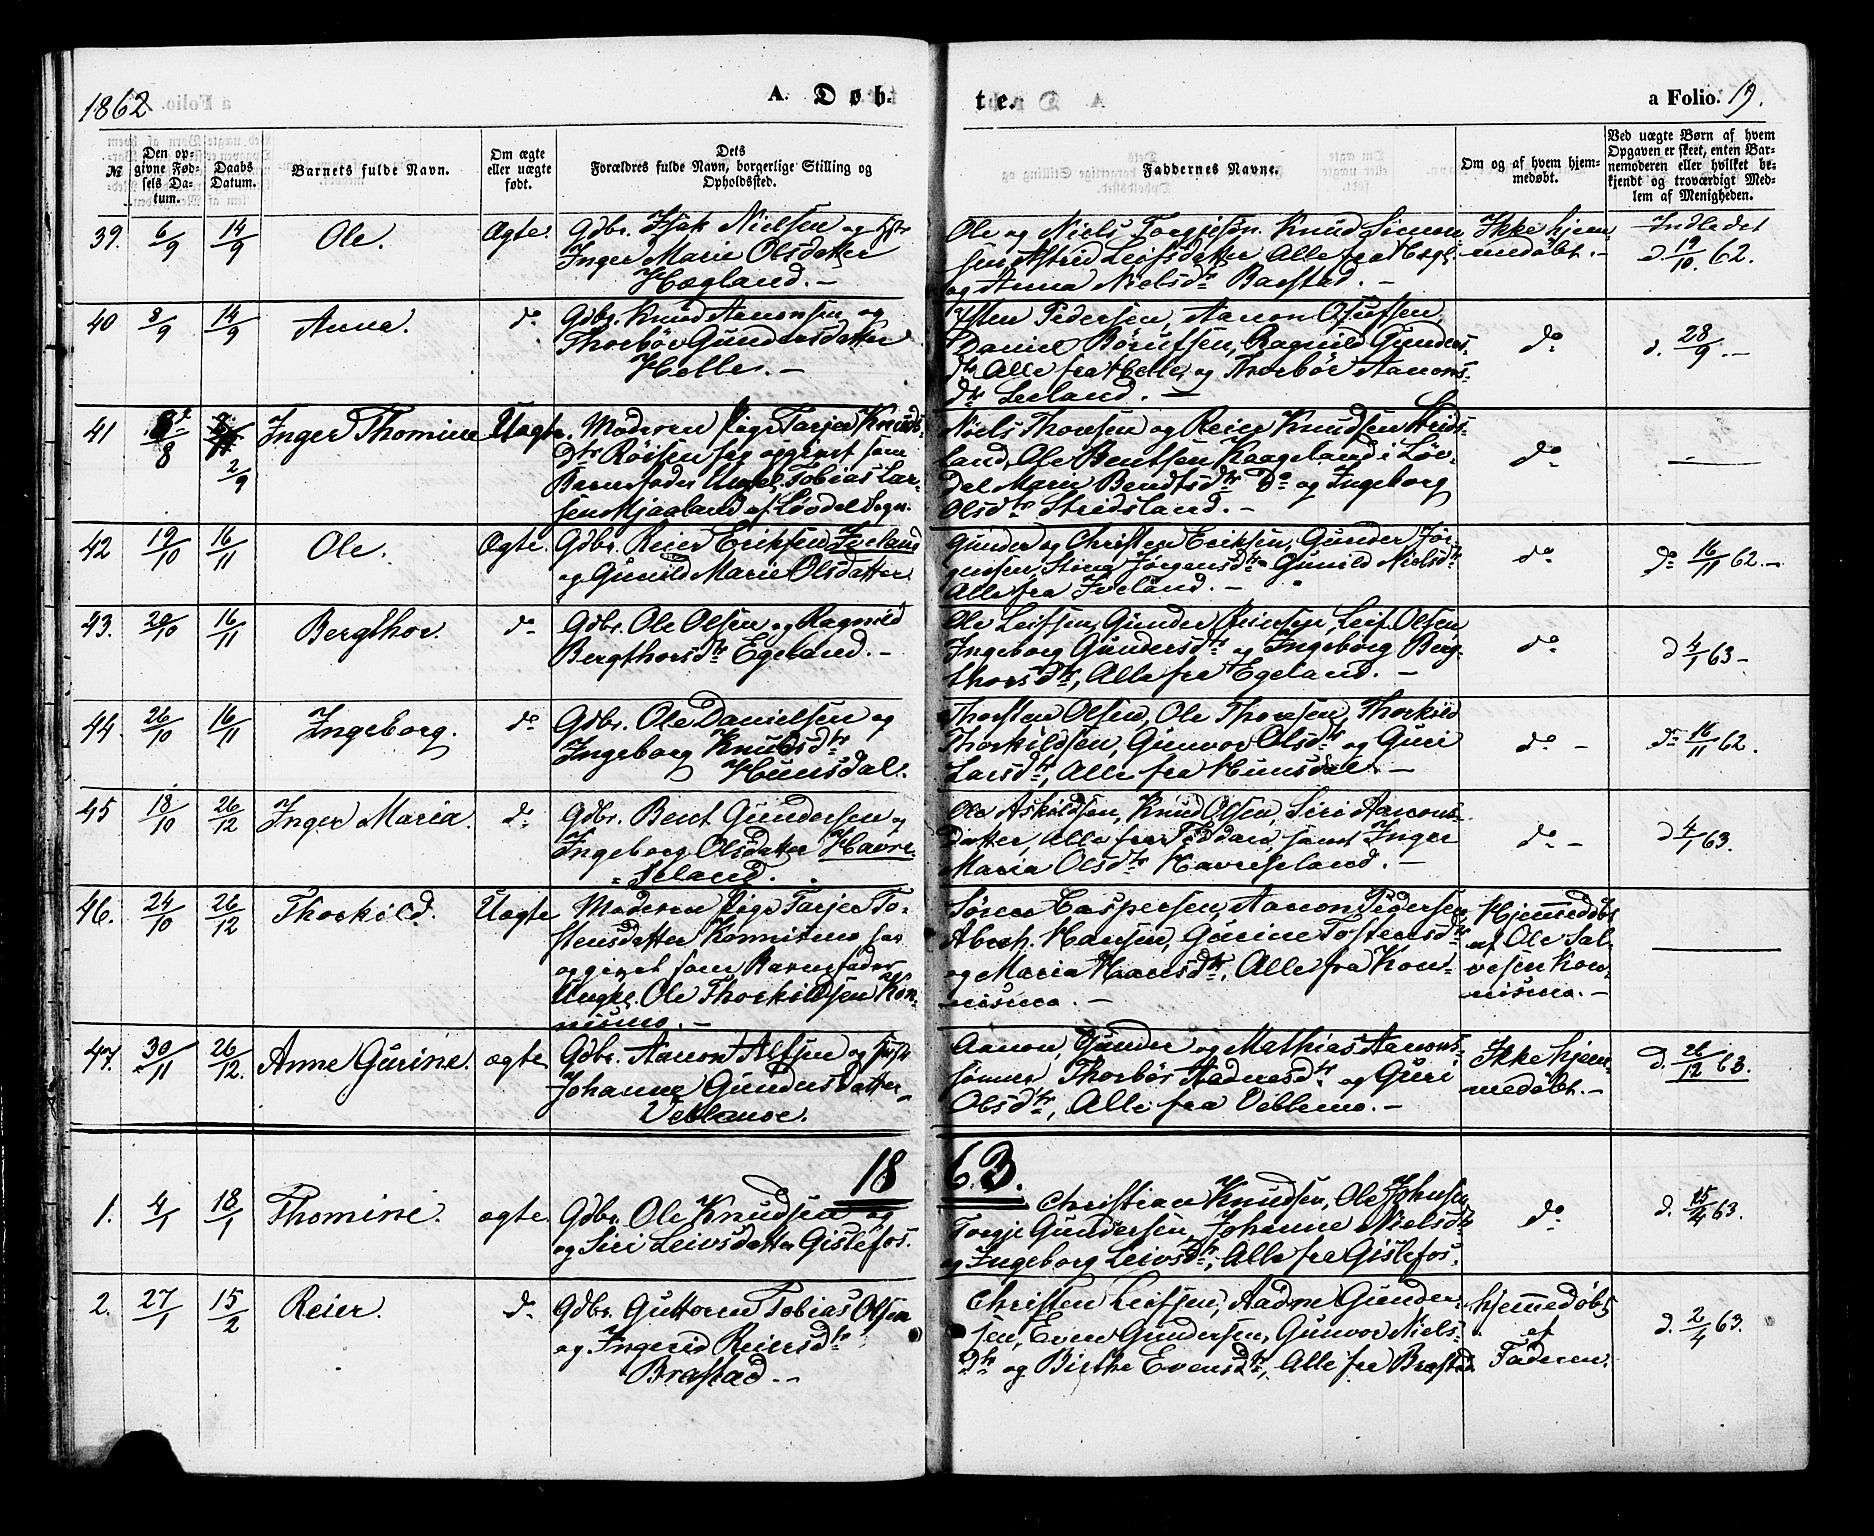 1862
A. Døb-
te.
a Folio. 19.
№
Den op-
givne Fød-
sels Da-
tum.
Daabs
Datum.
Barnets fulde Navn.
Om ægte
eller uægte
født.
Dets
Forældres fulde Navn, borgerlige Stilling og
Opholdssted.
Faddernes Navne.
Om og af hvem hjem-
medøbt.
Ved uægte Børn af hvem
Opgaven er skeet, enten Bar-
nemoderen eller hvilket be-
kjendt og troværdigt Med-
lem af Menigheden.
39. 6/9 14/9 Ole. Ægte.
Gdbr. Isak Nielsen og Hstr
Inger Marie Olsdatter
Hægland. –
Ole og Niels Torgjesøn. Knud Simon-
sen Astrid Leifsdatter Alle fra Hægl.
og Anna Nielsdtr Barstad. –
Ikke hjem-
medøbt. –
Indledet
d 19/10. 62.
40 8/9 14/9 Anna. do
Gdbr. Knud Aanonsen og
Thorbør Gundersdatter
Helle. –
Østen Pedersen, Aanon Olufsen,
Daniel Børufsen, Ragnild Gunders-
dtr, Alle fra Helle, og Thorbør Aanons-
dtr Leeland. –
do
d. 28/9. –
41 8 2/9 Inger Thomine Uægte.
Moderen Pige Tarjer Knuds-
dtr Røisen seg opgivet som
Barnefader Ungk. Tobias Lar-
sen Mjaaland af Løvdal Sogn.
Niels Thorsen og Reier Knudsen Strids-
land, Ole Bentsen Kaageland i Løv-
dal Marie Bendtsdtr Do og Ingeborg
Olsdtr Stridsland. –
do
—
42 19/10 16/11 Ole. Ægte.
Gdbr. Reier Eriksen Iveland
og Gunild Marie Olsdatter
Gunder og Christen Eriksen, Gunder Jør-
gensen, Stina Jørgensdtr Gunild Nielsdtr
Alle fra Iveland. –
do
do 16/11 62. –
43. 20/10 16/11 Bergthor. do
Gdbr. Ole Olsen og Ragnild
Bergthorsdtr Egeland. –
Ole Leifsen, Gunder Reiersen, Leif Olsen
Ingeborg Gundersdtr og Ingeborg Berg-
thorsdtr, Alle fra Egeland. –
do
d 4/1 63 –
44. 26/10 16/11 Ingeborg. do
Gdbr. Ole Danielsen og
Ingeborg Knudsdtr
Hunsdal.
Thorsten Olsen, Ole Thorsen, Thorkild
Thorkildsen, Gunvor Olsdtr og Guri
Larsdtr, Alle fra Hunsdal. –
do –
do 16/11 62.
45 18/10 26/12 Inger Maria. do
Gdbr. Bent Gundersen og
Ingeborg Olsdatter Havre-
Seland.
Ole Askildsen, Knud Olsen, Siri Aanons-
Datter, Alle fra Føddara, samt Inger
Maria Olsdtr Havreseland. –
do –
d 4/1 63.
46. 24/10 26/12 Thorkild. Uægte
Moderen Pige Tarjer To-
stensdatter Konnismo har
opgivet som Barnefader
Ungk. Ole Thorkildsen Kon-
nismo. –
Søren Caspersen, Aanon Pedersen
Abrah. Hansen, Gurine Tostensdtr
og Maria Hansdtr, Alle fra Kon-
nismo. –
Hjemmedøbt
af Ole Sal-
vesen Kon-
nismo. –
—
47. 30/11 26/12. Anne Gurine. ægte
Gdbr. Aanon Alfsen og Hstr
Johanne Gundersdatter
Veblamoe.
Aanon, Gunder og Mathias Aanons-
sønner, Thorbør Aadnesdtr og Guri
Olsdtr, Alle fra Veblemo. –
Ikke hjem-
medøbt. –
d. 26/12 63.
1863.
1. 4/1 18/1 Thomine. ægte
Gdbr. Ole Knudsen og
og Siri Leivsdatter Gislefos.
Christian Knudsen, Ole Johnsen
Torje Gundersen, Johanne Nielsdtr
og Ingeborg Leivsdtr, Alle fra Gislefos.
do
d. 15/4 63.
2. 27/1 15/2 Reier. do
Gdbr. Guttorm Tobias Olsen
og Ingerid Reiersdtr
Brastad. –
Christen Leifsen, Aadne Gunder-
sen, Even Gundersen, Gunvor Niels-
dtr og Birthe Evensdtr, Alle fra Brastad
hjemmedøbt
af
Faderen.
d. 2/4 63.